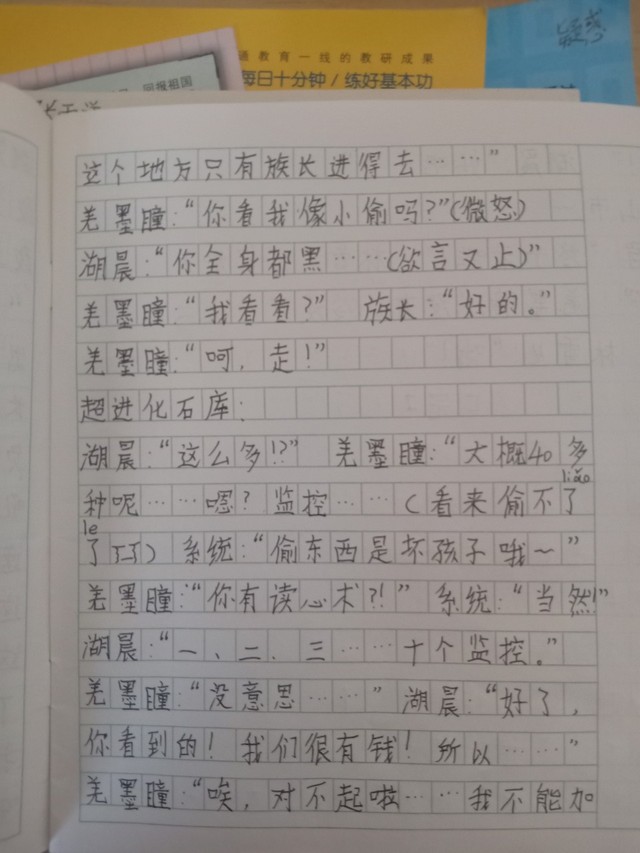 疑惑
通教育一线的教研成果
每日十分钟/练好基本功
回报祖国
这个地方只有族长进得去……”
羌墨瞳：“你看我像小偷吗？”（微怒）
湖晨：“你全身都黑……（欲言又止）”
羌墨瞳：“我看看？” 族长：“好的。”
羌墨瞳：“呵，走！”
超进化石库：
湖晨：“这么多！？” 羌墨瞳：“大概40多
种呢……嗯？监控……（看来偷不了
liǎo
le
了T_T） 系统：“偷东西是坏孩子哦～”
羌墨瞳：“你有读心术？！” 系统：“当然！”
湖晨：“一、二、三……十个监控。”
羌墨瞳：“没意思……” 湖晨：“好了，
你看到的！我们很有钱！所以……”
羌墨瞳：“唉，对不起啦……我不能加